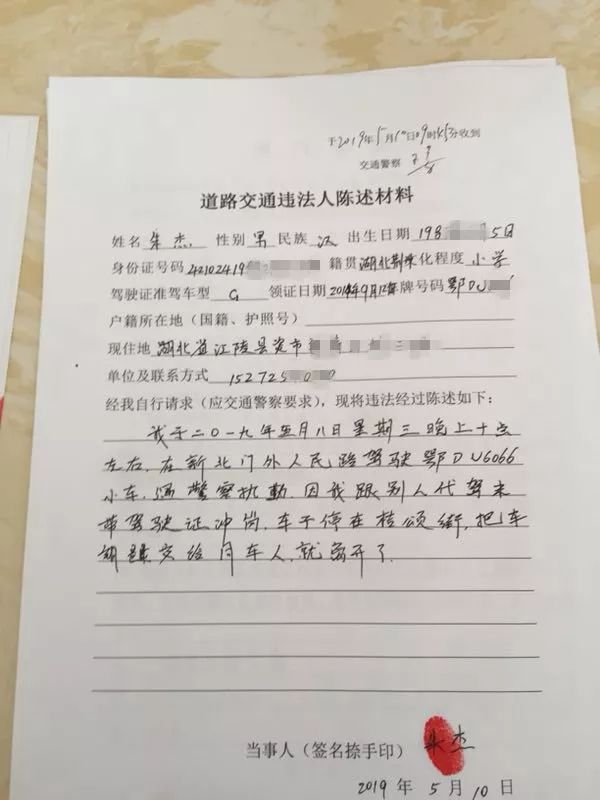 于2019年5月10日09时45分收到
交通警察
道路交通违法人陈述材料
姓名 朱杰 性别 男 民族 汉 出生日期 198 5日
身份证号码 42102419 籍贯 湖北荆 化程度 小学
驾驶证准驾车型 G 领证日期 2018年9月12 牌号码 鄂DU
户籍所在地（国籍、护照号）
现住地 湖北省江陵县资市
单位及联系方式 152725
经我自行请求（应交通警察要求），现将违法经过陈述如下：
我于二〇一九年五月八日星期三晚上十点
左右，在新北门外人民路驾驶鄂DU6066
小车，遇警察执勤，因我跟别人代驾未
带驾驶证冲岗，车子停在桔颂街，把车
钥匙交给同车人，就离开了.
当事人（签名捺手印） 朱杰
2019 年 5 月 10 日